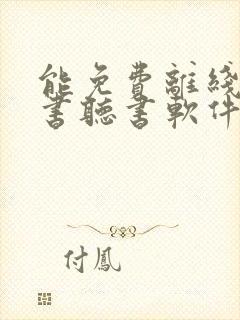 能免費離綫
書聽書軟件
付鳳